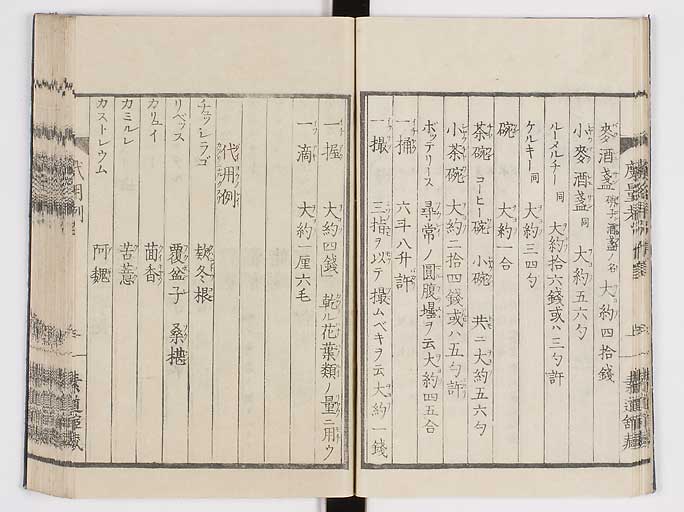 麥酒盞 硝子酒盞ノ名 大約四拾錢
小麥酒盞 同 大約五六勺
ルーメルチー 同 大約拾六錢或ハ三勺許
ケルキー 同 大約三四勺
碗 大約一合
茶碗 コーヒー碗 小碗 共ニ大約五六勺
小茶碗 大約二拾四錢或ハ五勺許
ボッテリース 尋常ノ圓腹壜ヲ云大約四五合
一桶 六斗八升許
一撮 三指ヲ以テ撮ムベキヲ云大約一錢
一握 大約四錢 乾ル花葉類ノ量ニ用ウ
一滴 大約一厘六毛
代用例
チュッシラゴ 欵冬根
リベッス 覆盆子 桑椹
カリュイ 茴香
カミルレ 苦薏
カストレウム 阿魏